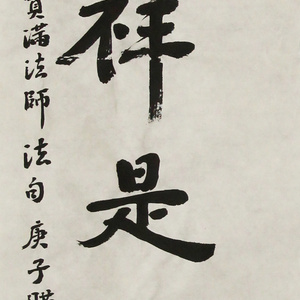 祥是
滿法師法句 庚子